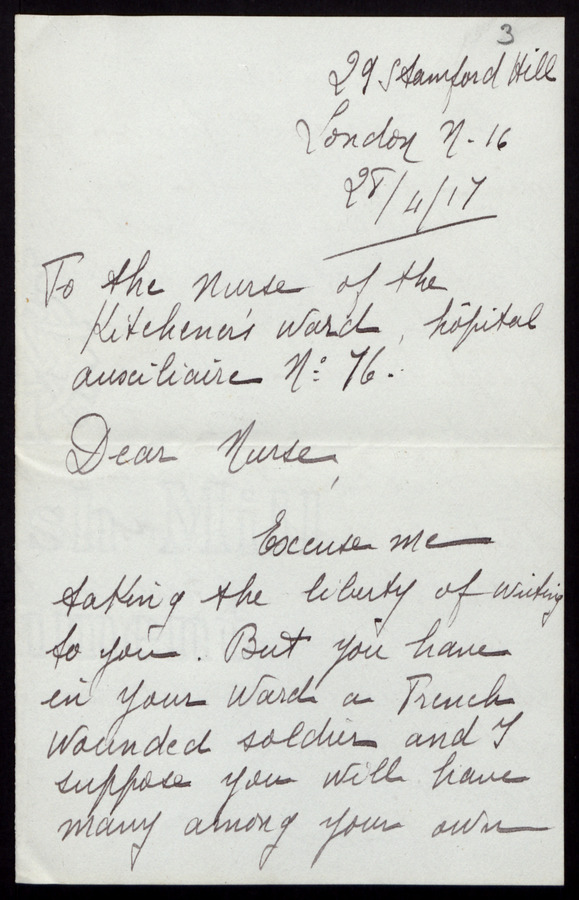 3
29 Stamford Hill
London N-16
28/4/17
To the Nurse of the
Kitchener's Ward, hôpital
auxiliaire Nº 76.
Dear Nurse,
Excuse me
taking the liberty of writing
to you. But you have
in your Ward a French
Wounded soldier and I
suppose you will have
many among your own